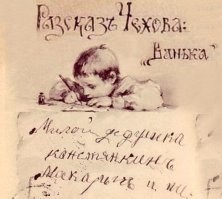 Разсказъ Чехова:
„Ванька“
Милой дедушка
канстянкинъ
Макарычъ и пи